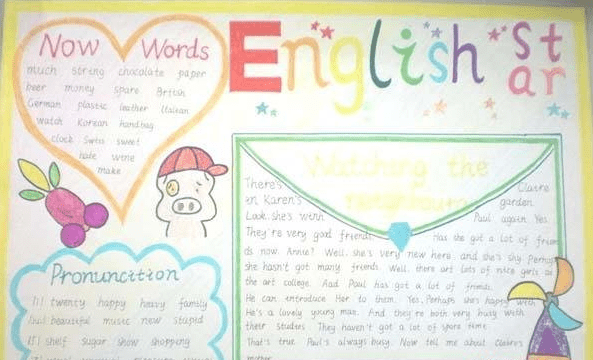 Now Words
much string chocolate paper
beer money spare British
German plastic leather Italian
watch Korean handbag
clock Swiss sweet
hate wine
make
English Star
Watching the
neighbours
There's Claire
in Karen's garden.
Look, she's with Paul again. Yes.
They're very good friends. Has she got a lot of frien
ds now, Annie? Well, she's very new here, and she's shy. Perhaps
she hasn't got many friends. Well, there are lots of nice girls at
the art college. And Paul has got a lot of friends.
He can introduce Her to them. Yes, Perhaps she's happy with
He's a lovely young man. And they're both very busy with
their studies. They haven't got a lot of spare time.
That's true. Paul's always busy. Now tell me about
Pronuncition
twenty happy heavy family
beautiful music new stupid
shelf sugar show shopping